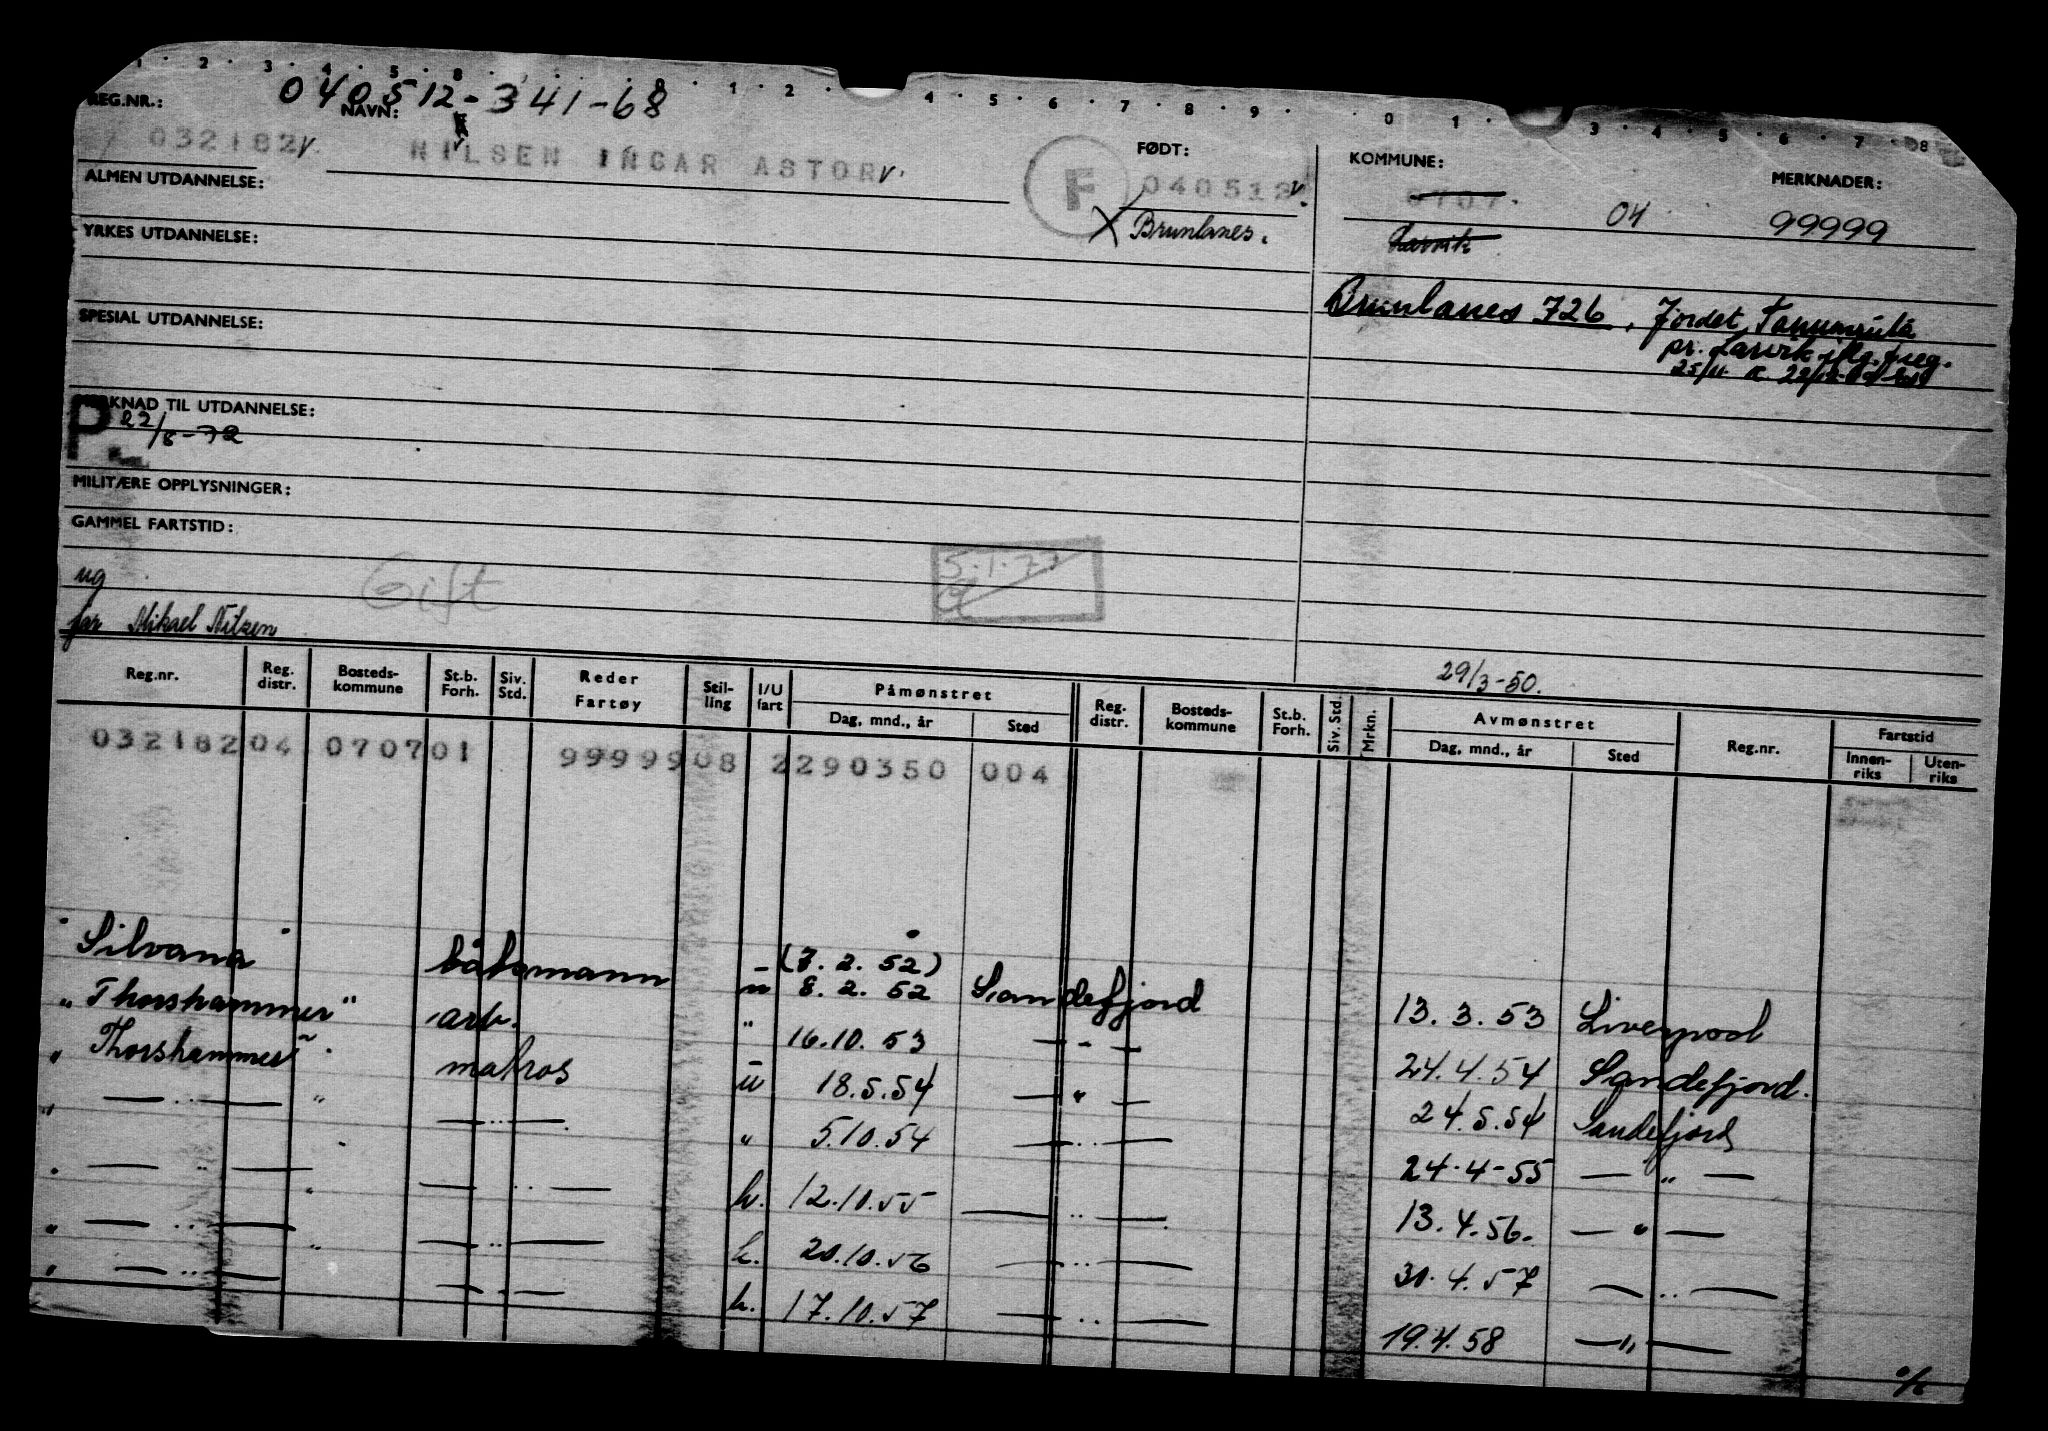 1 · 2 · 3 · 4 · 5 · 8 · 1 · 2 · 4 · 5 · 6 · 7 · 8 · 9 · 0 · 1 · 3 · 4 · 5 · 6 · 7 · 8
040512-341-68
REG.NR.: NAVN: FØDT: KOMMUNE: MERKNADER:
032182 v. NILSEN INGAR ASTOR v. F 040512 v. 0707. 04 99999
X Brunlanes. Larvik
ALMEN UTDANNELSE:
YRKES UTDANNELSE:
Brunlanes 726, Fjordet,
pr. Larvik
SPESIAL UTDANNELSE:
MERKNAD TIL UTDANNELSE:
P 22/8-72
MILITÆRE OPPLYSNINGER:
GAMMEL FARTSTID:
ug Gift 5.1.71
far Mikael Nilsen
29/3-50.
Reg.nr. Reg. distr. Bosteds-kommune St.b. Forh. Siv. Std. Reder Fartøy Stil-ling I/U fart Påmønstret Dag, mnd., år Sted Reg. distr. Bosteds-kommune St.b. Forh. Siv. Std. Mrkn. Avmønstret Dag, mnd., år Sted Reg.nr. Fartstid Innen-riks Uten-riks
032182 04 0707 01 99999 08 2 290350 004
"Silvana" båtsmann u (7.2.52) 8.2.52 Sandefjord 13.3.53 Liverpool
"Thorshammer" arb. " 16.10.53 — " — 24.4.54 Sandefjord.
"Thorshammer" matros u 18.5.54 — " — 24.5.54 Sandefjord
" — " — " — " — " 5.10.54 — " — 24.4-55 — " —
" — " — " — " — h. 12.10.55 — " — 13.4.56. — " —
" — " — " — " — h. 20.10.56 — " — 30.4.57 — " —
" — " — " — " — h. 17.10.57 — " — 19.4.58 — " —